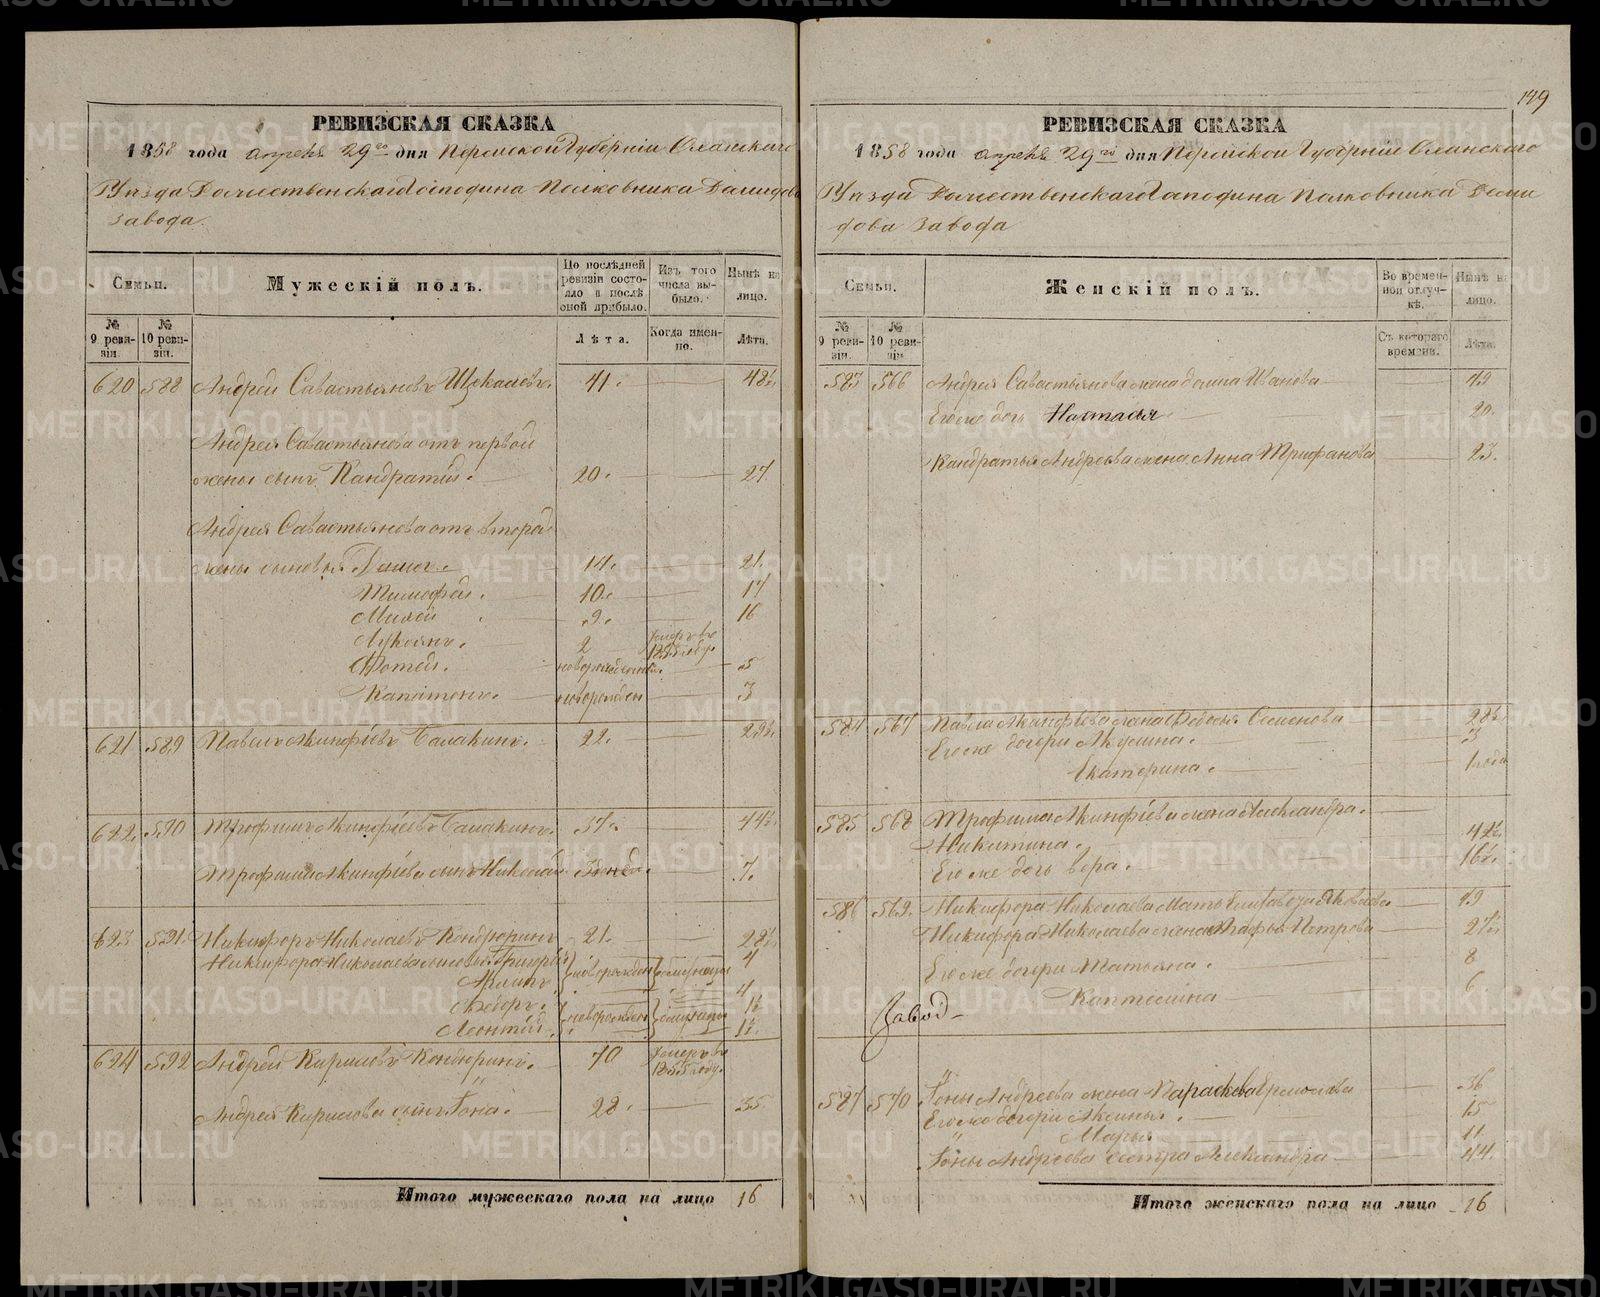 РЕВИЗСКАЯ СКАЗКА
1858 года апреля 29го дня Пермской Губернiи Оханскаго
Уѣзда Рождественскаго Господина Полковника Демидова
Завода.
Семьи.
Мужескiй полъ.
По послѣдней ревизiи состояло и послѣ оной прибыло.
Изъ того числа выбыло.
Нынѣ на лицо.
№ 9 ревизiи.
№ 10 ревизiи.
Лѣта.
Когда именно.
Лѣта.
620 588 Андрей Савастьяновъ 41. 48½
Андрея Савастьянова отъ первой
жены сынъ Кандратiй. 20. 27
Андрея Савастьянова отъ второй
жены сыновья 14. 21.
Тимофей. 10. 17
9. 16
Лукоянъ. 2 умеръ въ
Фотей. новорожденный. 5
Капитонъ. новорожден 3
621 589 Павелъ Акинфiевъ Балакинъ. 22. 29½.
622. 590 Трофимъ Акинфiевъ Балакинъ. 37. 44½.
Трофима Акинфiева сынъ Николай 7.
623 591. Никифоръ Николаевъ Кондюринъ 21. 28½
Никифора Николаева сыновья Григорiй 4
новорожден
Леонтiй
624 592 Андрей Кириловъ Кондюринъ. 70 умеръ въ
1855 году.
Андрея Кирилова сынъ Iона. 28. 35.
Итого мужескаго пола на лицо 16
149
РЕВИЗСКАЯ СКАЗКА
1858 года апреля 29го дня Пермской Губернiи Оханскаго
Уѣзда Рождественскаго Господина Полковника Деми
дова Завода
Семьи.
Женскiй полъ.
Во временной отлучкѣ.
Нынѣ на лицо.
№ 9 ревизiи.
№ 10 ревизiи.
Съ котораго времени.
Лѣта.
583 566 Андрея Савастьянова жена Иванова 49
Его же дочь Настасья 20.
Кандратья Андреева жена Анна Трифанова 23.
584 567 Павла Акинфiева жена Федосья Семенова 28½
Его же дочери Акулина. 3
Екатерина. 1 года
585 568 Трофима Акинфiева жена Александра.
Никитина. 42½.
Его же дочь вера. 16½.
586 569. Никифора Николаева Мать Елизавета Яковлева 49
Никифора Николаева жена Петрова 27½
Его же дочери Татьяна. 8
6
Завод
587 570 Iоны Андреева жена Парасковья Ермолаева 36
Его же дочери Аксинья. 15
Марья 11
Iоны Андреева сестра Александра 44.
Итого женскаго пола на лицо 16
METRIKI.GASO-URAL.RU